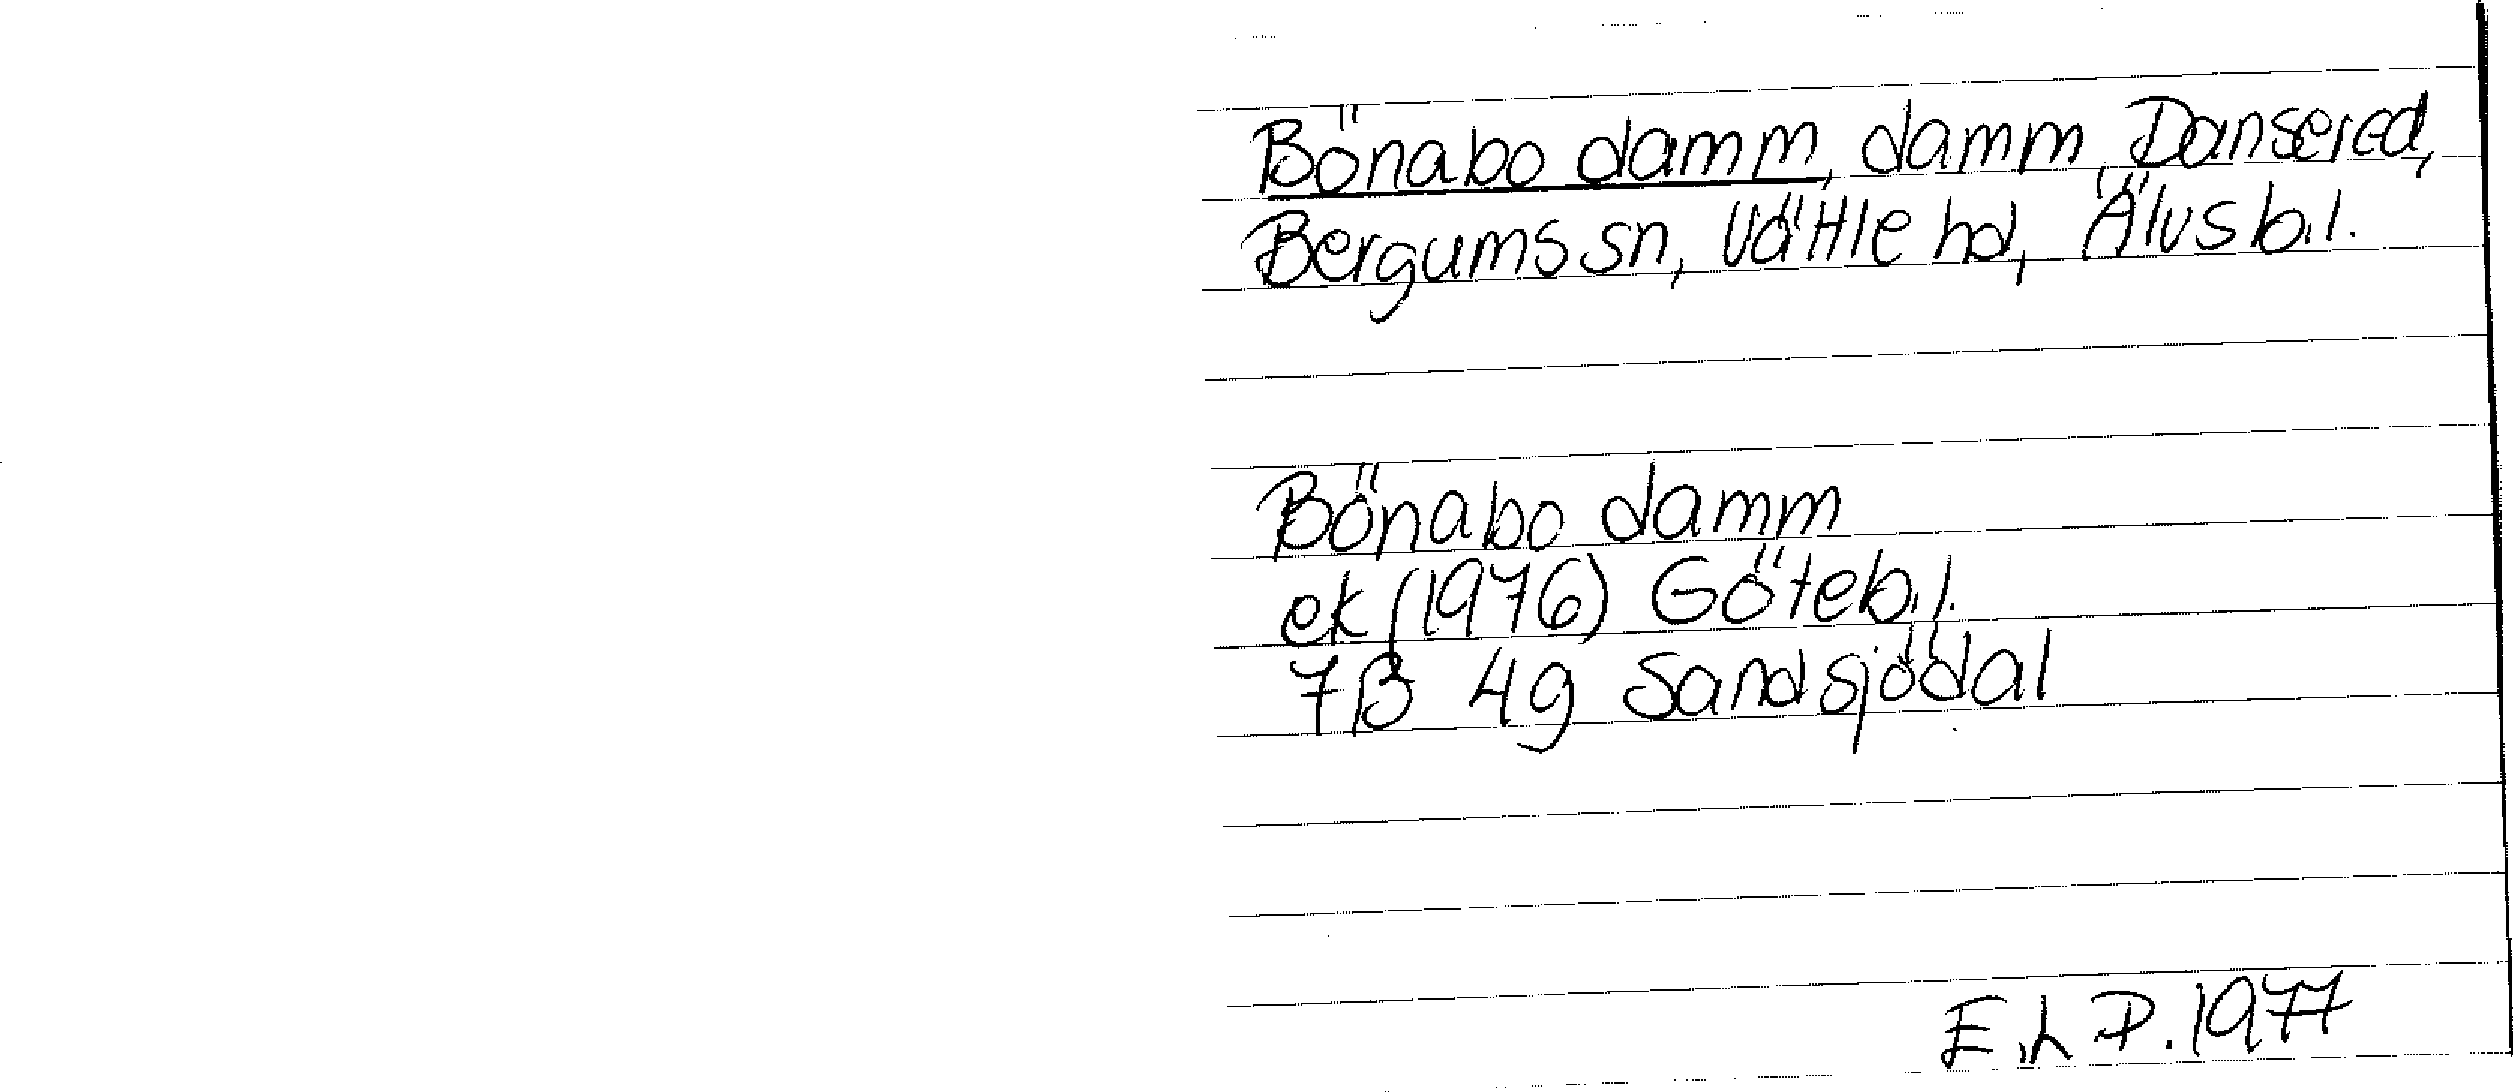 Bönabo damm, damm Dansered,
Bergums sn, Vättle hd, Älvsb.l.
Bönabo damm
ek (1976) Göteb.l.
7B 4g Sandsjödal
E.L P. 1977